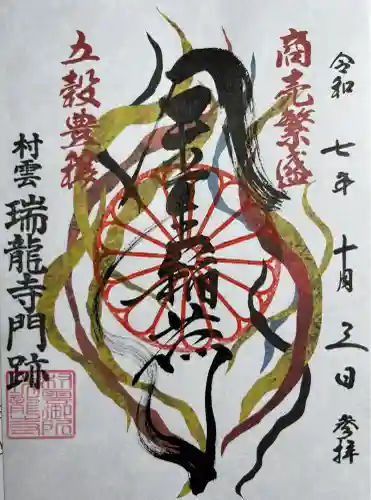 令和 七年 十月 三日 参拝
商売繁盛
稲荷
五穀豊穣
村雲 瑞龍寺門跡